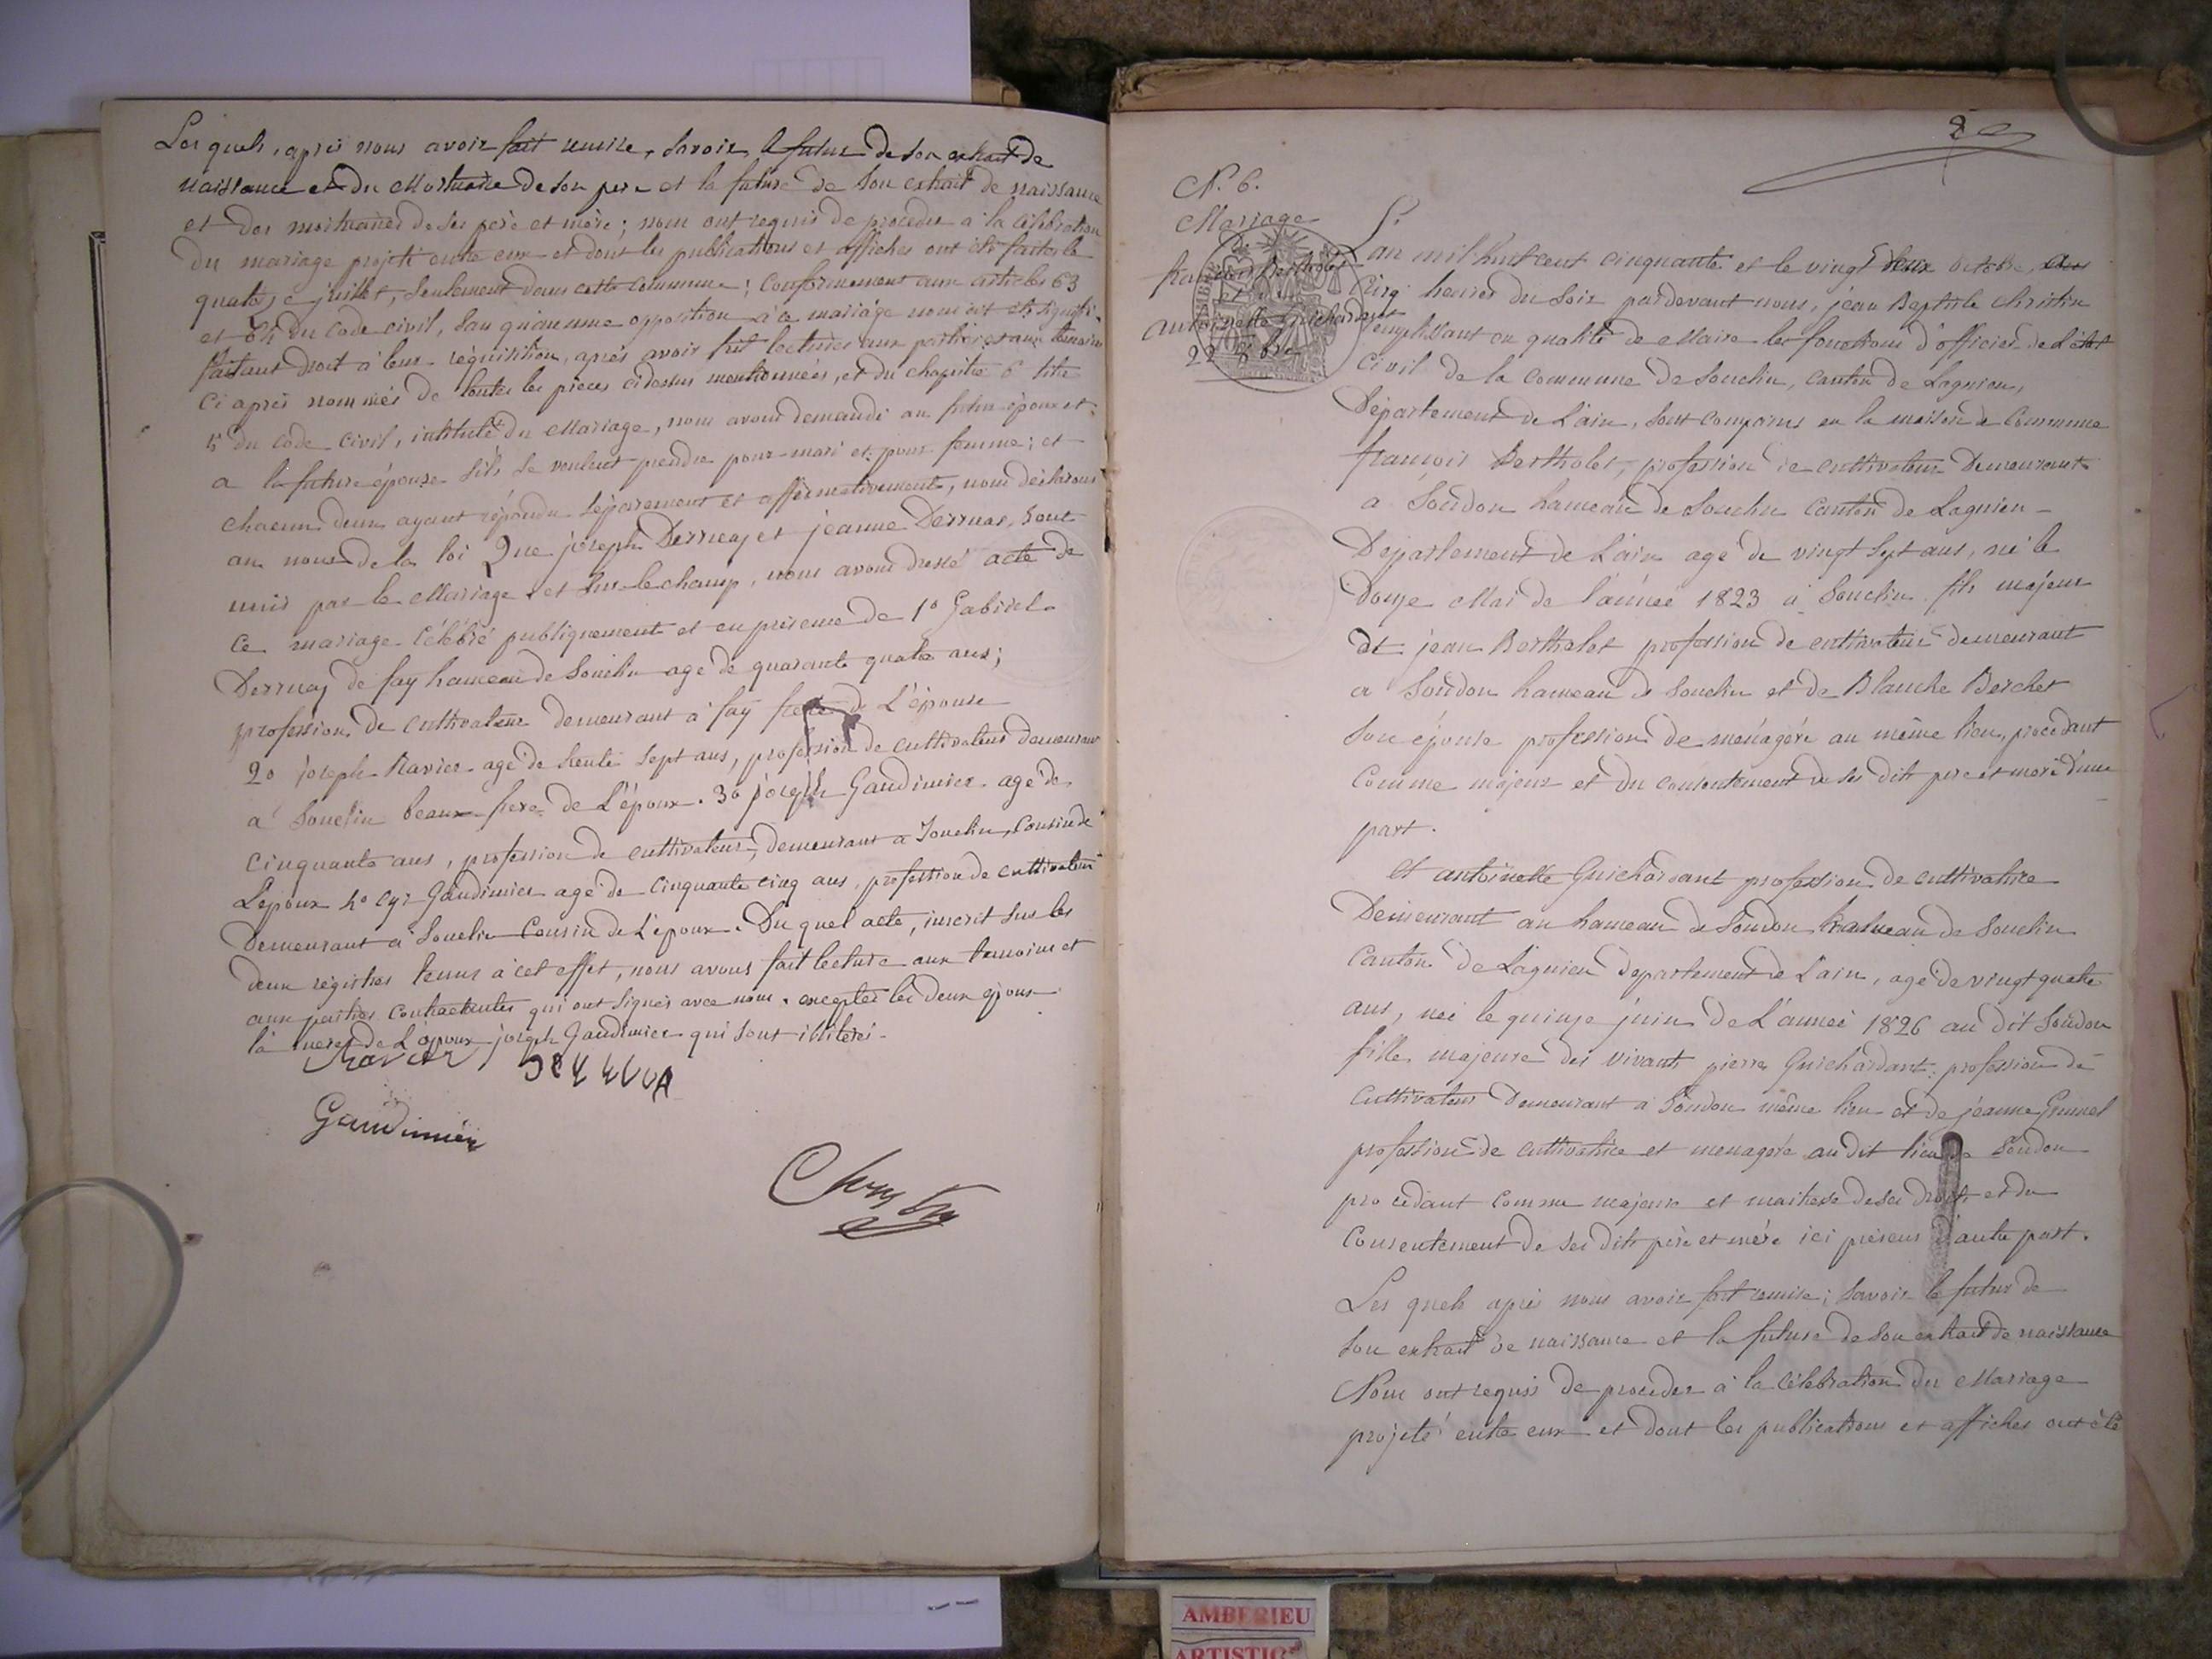 Les quels, après nous avoir fait remise, savoir, le futur de son extrait de
naissance et du Mortuaire de son pere et la future de son extrait de naissance
et des mortuaires de ses père et mère ; nous ont requis de proceder à la célébration
du mariage projeté entre eux et dont les publications et affiches ont été faites le
quatorze juillet, seulement dans cette commune ; conformement aux articles 63
et 64 du Code civil, sans qu'aucune opposition à ce mariage nous ait été signifié.
faisant droit à leur réquisition, après avoir fait lectures aux parties et aux temoins
ci après nommés de toutes les pièces cidessus mentionnées, et du chapitre 6 titre
5 du code civil, intitulé du Mariage, nous avons demandé au futur époux et
a la future épouse s'ils se veulent prendre pour mari et pour femme ; et
chacun deux ayant répondu séparement et affirmativement, nous déclarons
au nom de la loi Que joseph Derruaz et jeanne Derruaz, sont
unis par le Mariage et sur-le champ, nous avons dressé acte de
ce mariage célébré publiquement et en présence de 1° Gabriel
Derruaz de fay hameau de Souclin age de quarante quatre ans ;
profession de cultivateur demeurant a fay frere de L'épouse
2° joseph Ravier age de trente sept ans, profession de cultivateur demeurant
a Souclin beaux-frere de L'époux. 3° joseph Gaudimier agé de
cinquante ans, profession de cultivateur, demeurant a Souclin, Cousin de
L'époux 4° Cyr Gaudimier agé de cinquante cinq ans, profession de cultivateur
Demeurant a Souclin Cousin de L'époux. Du quel acte, inscrit sur les
deux registres tenus à cet effet, nous avons fait lecture aux temoins et
aux parties contractantes qui ont signés avec nous. exceptés les deux époux
la mere de L'époux joseph Gaudimier qui sont illiterés.
Ravier
Gaudimier
8
N°. 6.
Mariage
françois Berthelot
et
antoinette Guichardant
22 8bre
L'an mil huit cent cinquante et le vingt deux octobre, aux
cinq heures du soir pardevant nous, jean Baptiste Christin
remplissant en qualité de Maire les fonctions d'officier de L'état
Civil de la Commune de Souclin, canton de Lagnieu,
Département de L'ain, sont comparus en la maison de Commune
françois Berthelot, profession de cultivateur Demeurant
a Soudon hameau de Souclin canton de Lagnieu
Departement de L'ain age de vingt sept ans, né le
Douze Mai de l'année 1823 à Souclin fils majeur
de jean Berthelot profession de cultivateur demeurant
a Soudon hameau de Souclin et de Blanche Berchet
son épouse profession de ménagère au même lieu, procedant
comme majeur et du consentement de ses dits pere et mere d'une
part.
Et antoinette Guichardant profession de cultivatrice
Demeurant au hameau de Soudon hameau de Souclin
Canton de Lagnieu departement de L'ain, agé de vingt quatre
ans, née le quinze juin de L'année 1826 au dit Soudon
fille majeure des vivants pierre Guichardant ; profession de
Cultivateur Demeurant à Soudon même lieu et de jeanne
profession de cultivatrice et menagère au dit lieu de Soudon
procedant comme majeure et maitresse de ses droits et du
Consentement de ses dits père et mère ici présens d'autre part.
Les quels après nous avoir fait remise ; savoir le futur de
son extrait de naissance et la future de son extrait de naissance
Nous ont requis de proceder à la célébration du Mariage
projeté entre eux et dont les publications et affiches ont été
AMBERIEU
ARTISTIC